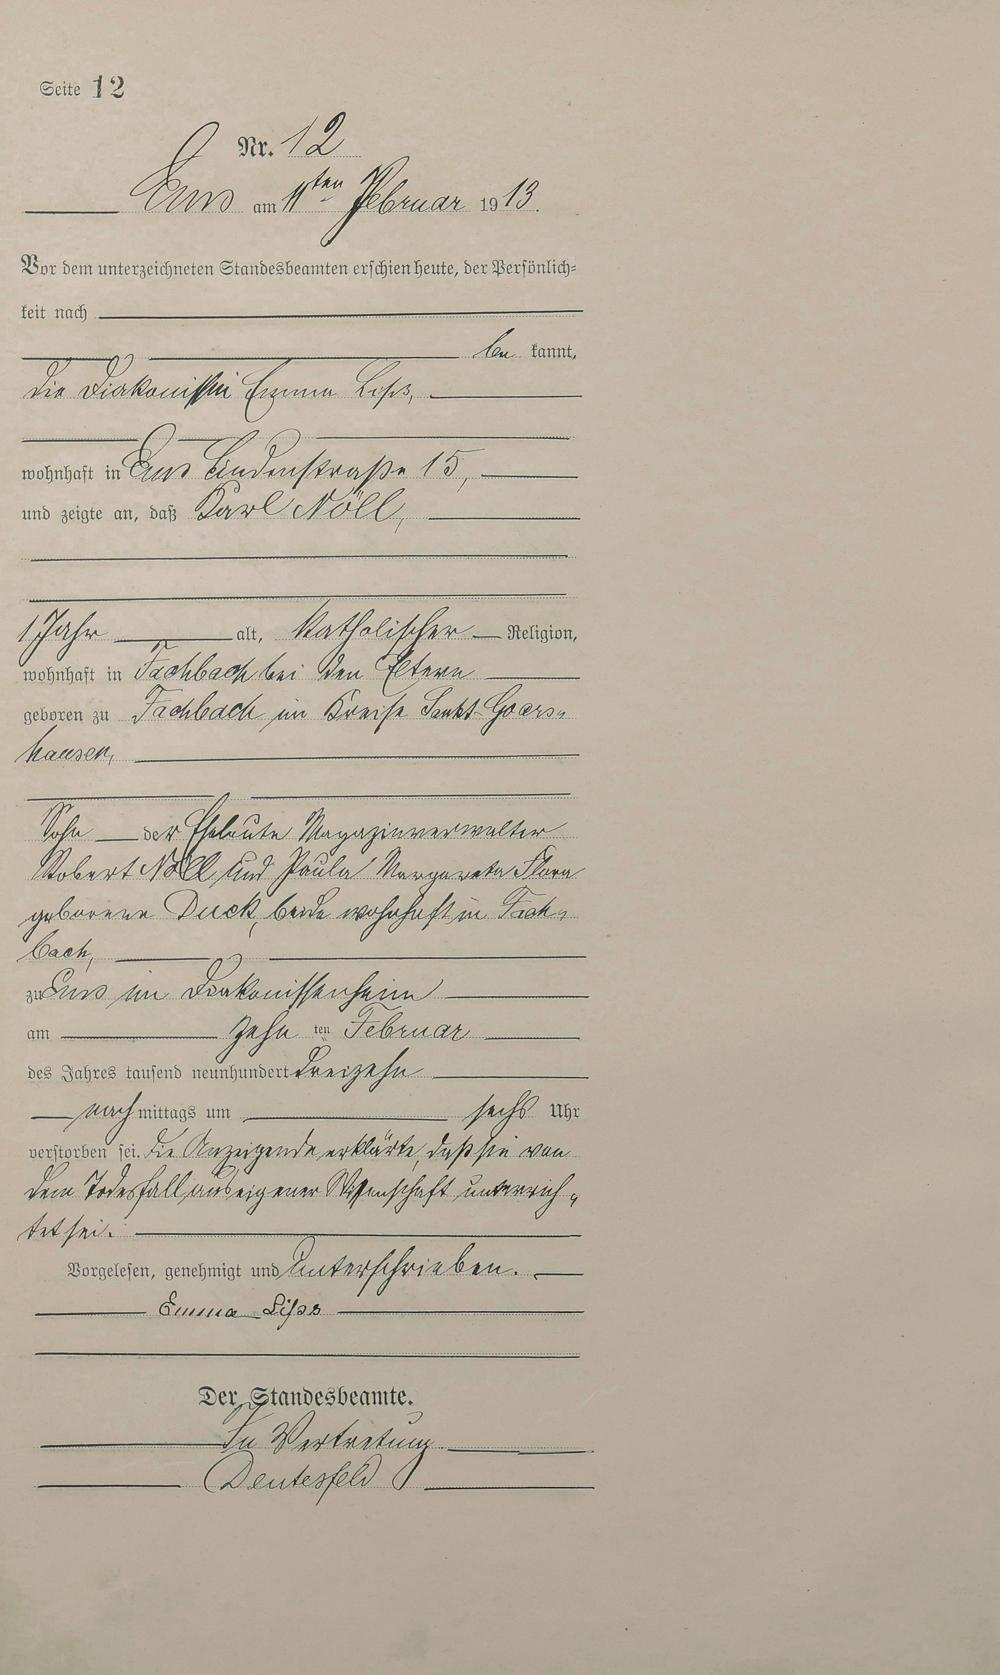 Seite 12
Nr. 12
Ems am 11ten Februar 1913.
Vor dem unterzeichneten Standesbeamten erschien heute, der Persönlich-
keit nach
be kannt,
die Diakonissin Emma
wohnhaft in Ems Lindenstraße 15,
und zeigte an, daß Karl Nöll,
1 Jahr alt, katholischer Religion,
wohnhaft in Fachbach bei den Eltern
geboren zu Fachbach im Kreise Sankt Goars-
hausen,
Sohn der Eheleute Magazinverwalter
Robert Nöll und Paula Margareta Flora
geborene Duck, beide wohnhaft in Fach-
bach,
zu Ems im Diakonissenheim
am zehn ten Februar
des Jahres tausend neunhundert dreizehn
nach mittags um sechs Uhr
verstorben sei. Die Anzeigende erklärte, daß sie von
dem Todesfall aus eigener Wissenschaft unterrich-
tet sei.
Vorgelesen, genehmigt und unterschrieben.
Emma
Der Standesbeamte.
In Vertretung